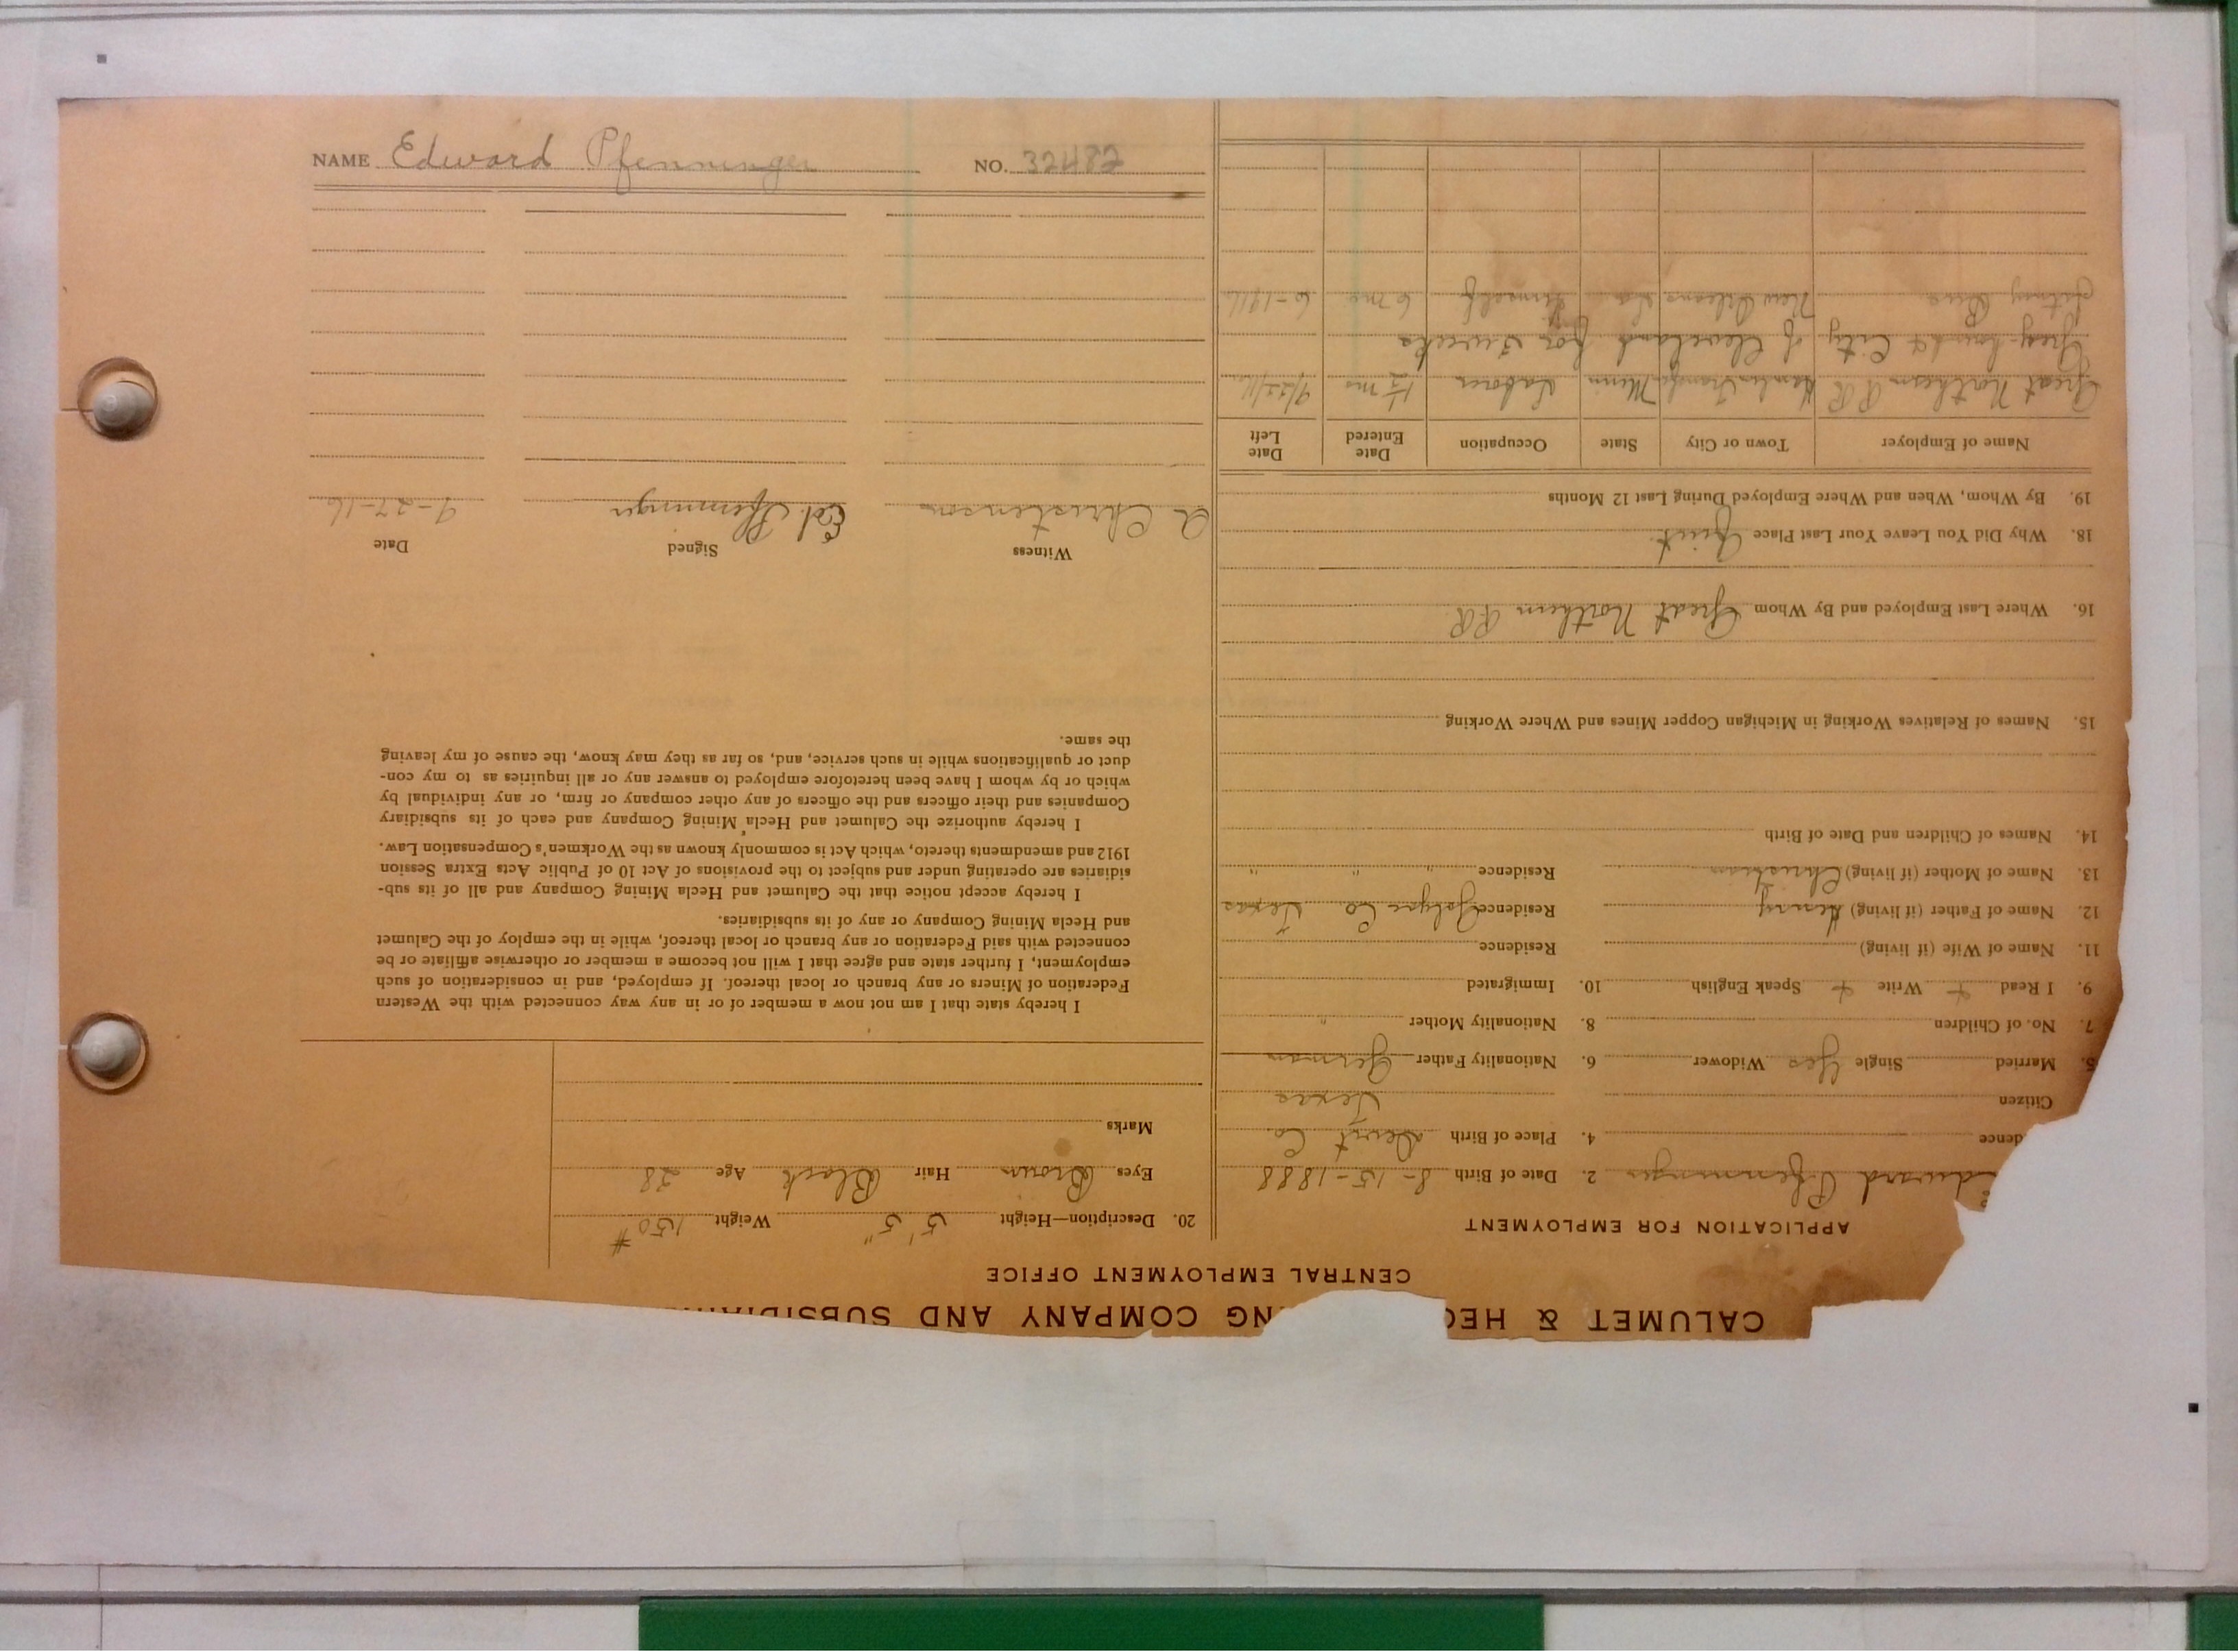 NAME Edward Pfenninger NO. 32482
CALUMET & HEC NG COMPANY AND SUBSIDIA
CENTRAL EMPLOYMENT OFFICE
APPLICATION FOR EMPLOYMENT
dward Pfenninger 2. Date of Birth 8-15-1888
dence 4. Place of Birth Dewit Co.
Citizen Texas
5. Married Single Yes Widower 6. Nationality Father German
7. No. of Children 8. Nationality Mother "
9. I Read + Write + Speak English 10. Immigrated
11. Name of Wife (if living) Residence
12. Name of Father (if living) Henry Residence Co. Texas
13. Name of Mother (if living) Residence " " "
14. Names of Children and Date of Birth
15. Names of Relatives Working in Michigan Copper Mines and Where Working
16. Where Last Employed and By Whom Great Northern RR
18. Why Did You Leave Your Last Place Quit
19. By Whom, When and Where Employed During Last 12 Months
Name of Employer Town or City State Occupation Date Entered Date Left
Great Northern RR Minn Laborer 1½ mo
Grey-hound & City of Cleveland for 3 weeks
Jitney Bus New Orleans La himself 6 mo 6-1916
20. Description—Height 5' 5" Weight 150 #
Eyes Brown Hair Black Age 28
Marks
I hereby state that I am not now a member of or in any way connected with the Western
Federation of Miners or any branch or local thereof. If employed, and in consideration of such
employment, I further state and agree that I will not become a member or otherwise affiliate or be
connected with said Federation or any branch or local thereof, while in the employ of the Calumet
and Hecla Mining Company or any of its subsidiaries.
I hereby accept notice that the Calumet and Hecla Mining Company and all of its sub-
sidiaries are operating under and subject to the provisions of Act 10 of Public Acts Extra Session
1912 and amendments thereto, which Act is commonly known as the Workmen's Compensation Law.
I hereby authorize the Calumet and Hecla Mining Company and each of its subsidiary
Companies and their officers and the officers of any other company or firm, or any individual by
which or by whom I have been heretofore employed to answer any or all inquiries as to my con-
duct or qualifications while in such service, and, so far as they may know, the cause of my leaving
the same.
Witness Signed Date
A Christenson Ed. Pfenninger 9-27-16